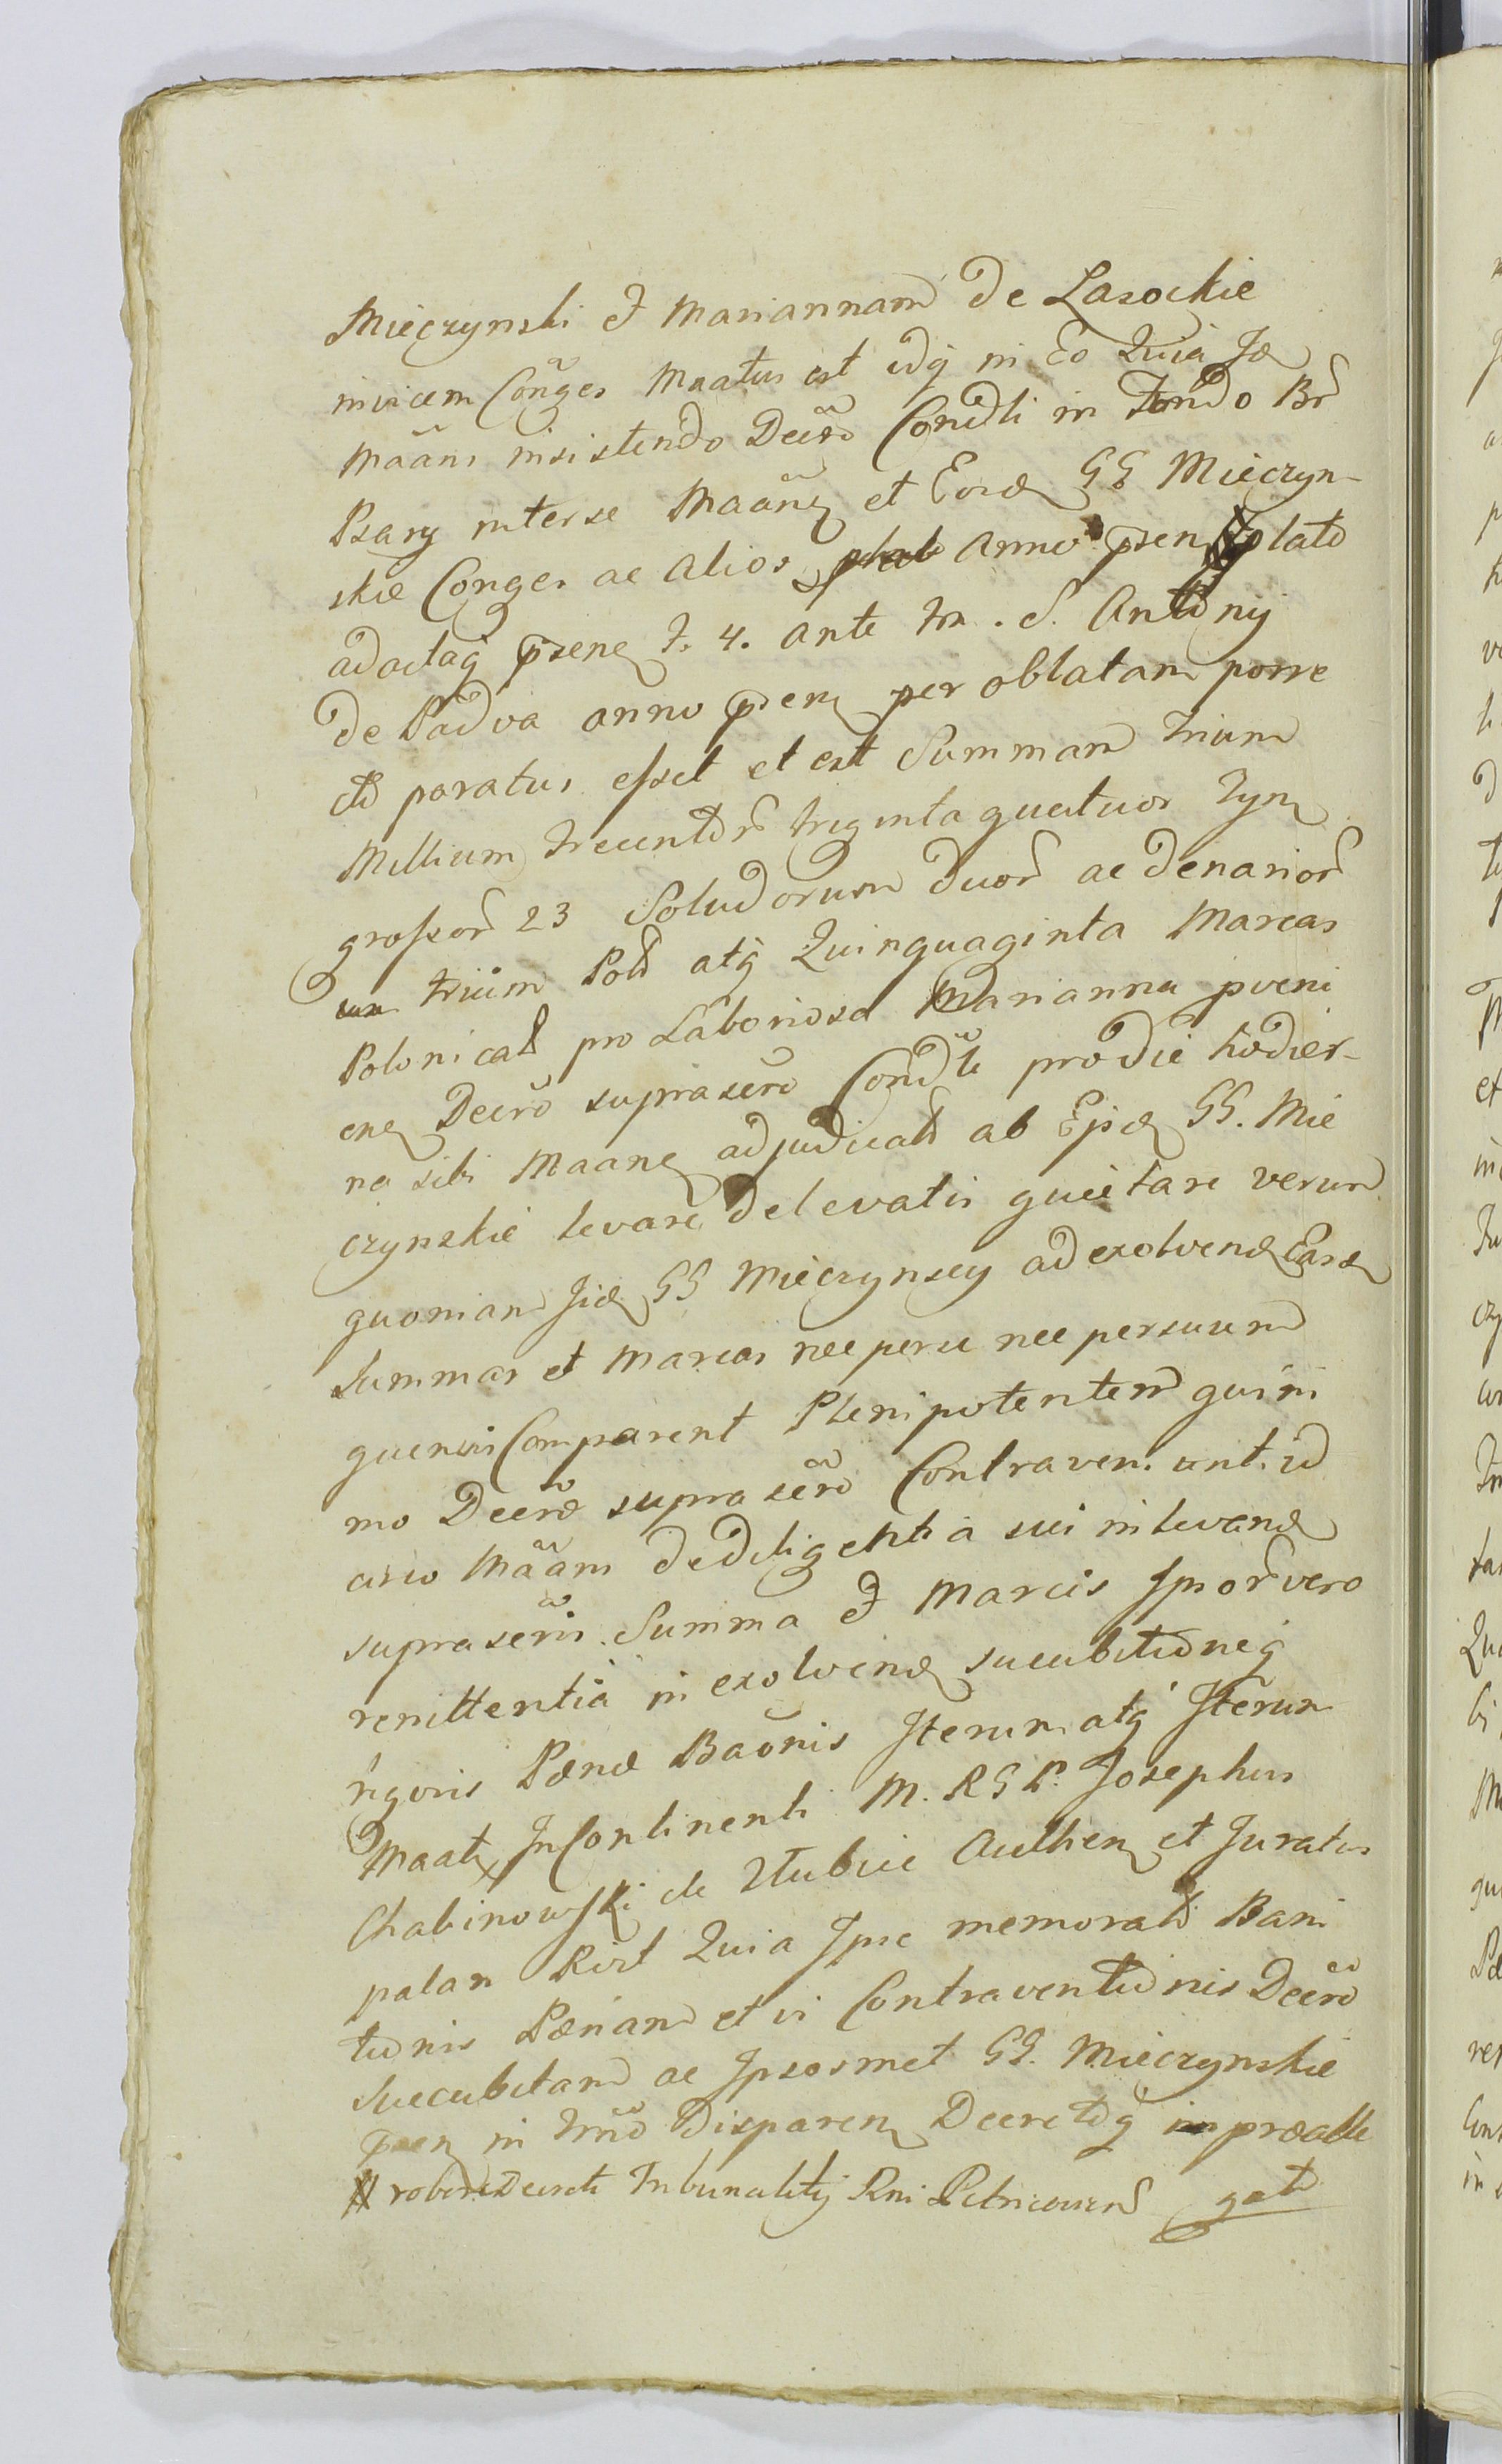 Mieczynski et Mariannam De Lasockie
invicem Cõnges Maatus est idq in Eo Quia Id
Maãns insistendo Decrõ Condti in Fundo Br̃
Psary inter se Maanẽ et Eosd GG Mieczyn-
skie Conges ac alios Anno psen lato
ad actaq psene F. 4. ante fm. S. Antonij
De Padva anno psen per oblatam porre
cto paratus esset et est Summam Trium
Millium Trecentor̃ triginta quatuor Tyn
grossor̃ 23 Solidorum Duor̃ ac denarior̃
trium Pol atq Quinquaginta Marcas
Polonical pro Laboriosa Marianna pveni
en Decrõ suprascrõ Condti pro Die hodier-
na sibi Maane adjudicat ab Eisd GG. Mie
czynskie levare De levatis quietare verum
quoniam Iid GG Mieczynscy ad exolvend Easd
Summas et Marcas nec per se nec per suum
quenvis Comparent Plenipotentem quini
mo Decrõ suprascrõ Contraveniunt id
circo Maãns De Diligentia sui in levand
suprascris Summa et Marcis Ipsor̃ vero
renittentia in exolvend sucubitioneq
rigoris Pænæ Baõnis Iterum atq Iterum
Maat In Continenti M. R G P. Josephus
Chabinowski de Stubice Authen et Juratus
palam Rist Quia Ipse memorat Bani
tionis Pænam et vi Contraventionis Decrõ
Succubitam ac Ipsosmet GG. Mieczynskie
psen in Trnõ Disparen Decretoq in præalle
robore Decreti Tribunalitij Rni Petricovien gato